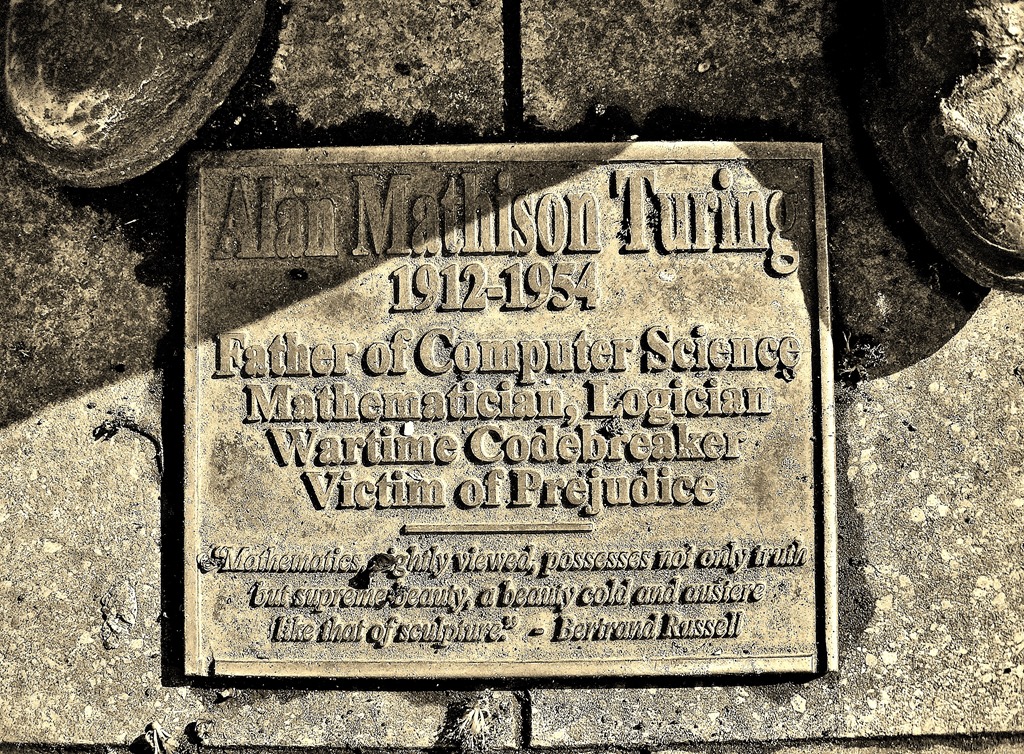 Alan Mathison Turing
1912-1954
Father of Computer Science
Mathematician, Logician
Wartime Codebreaker
Victim of Prejudice
"Mathematics, rightly viewed, possesses not only truth
but supreme beauty, a beauty cold and austere
like that of sculpture." - Bertrand Russell